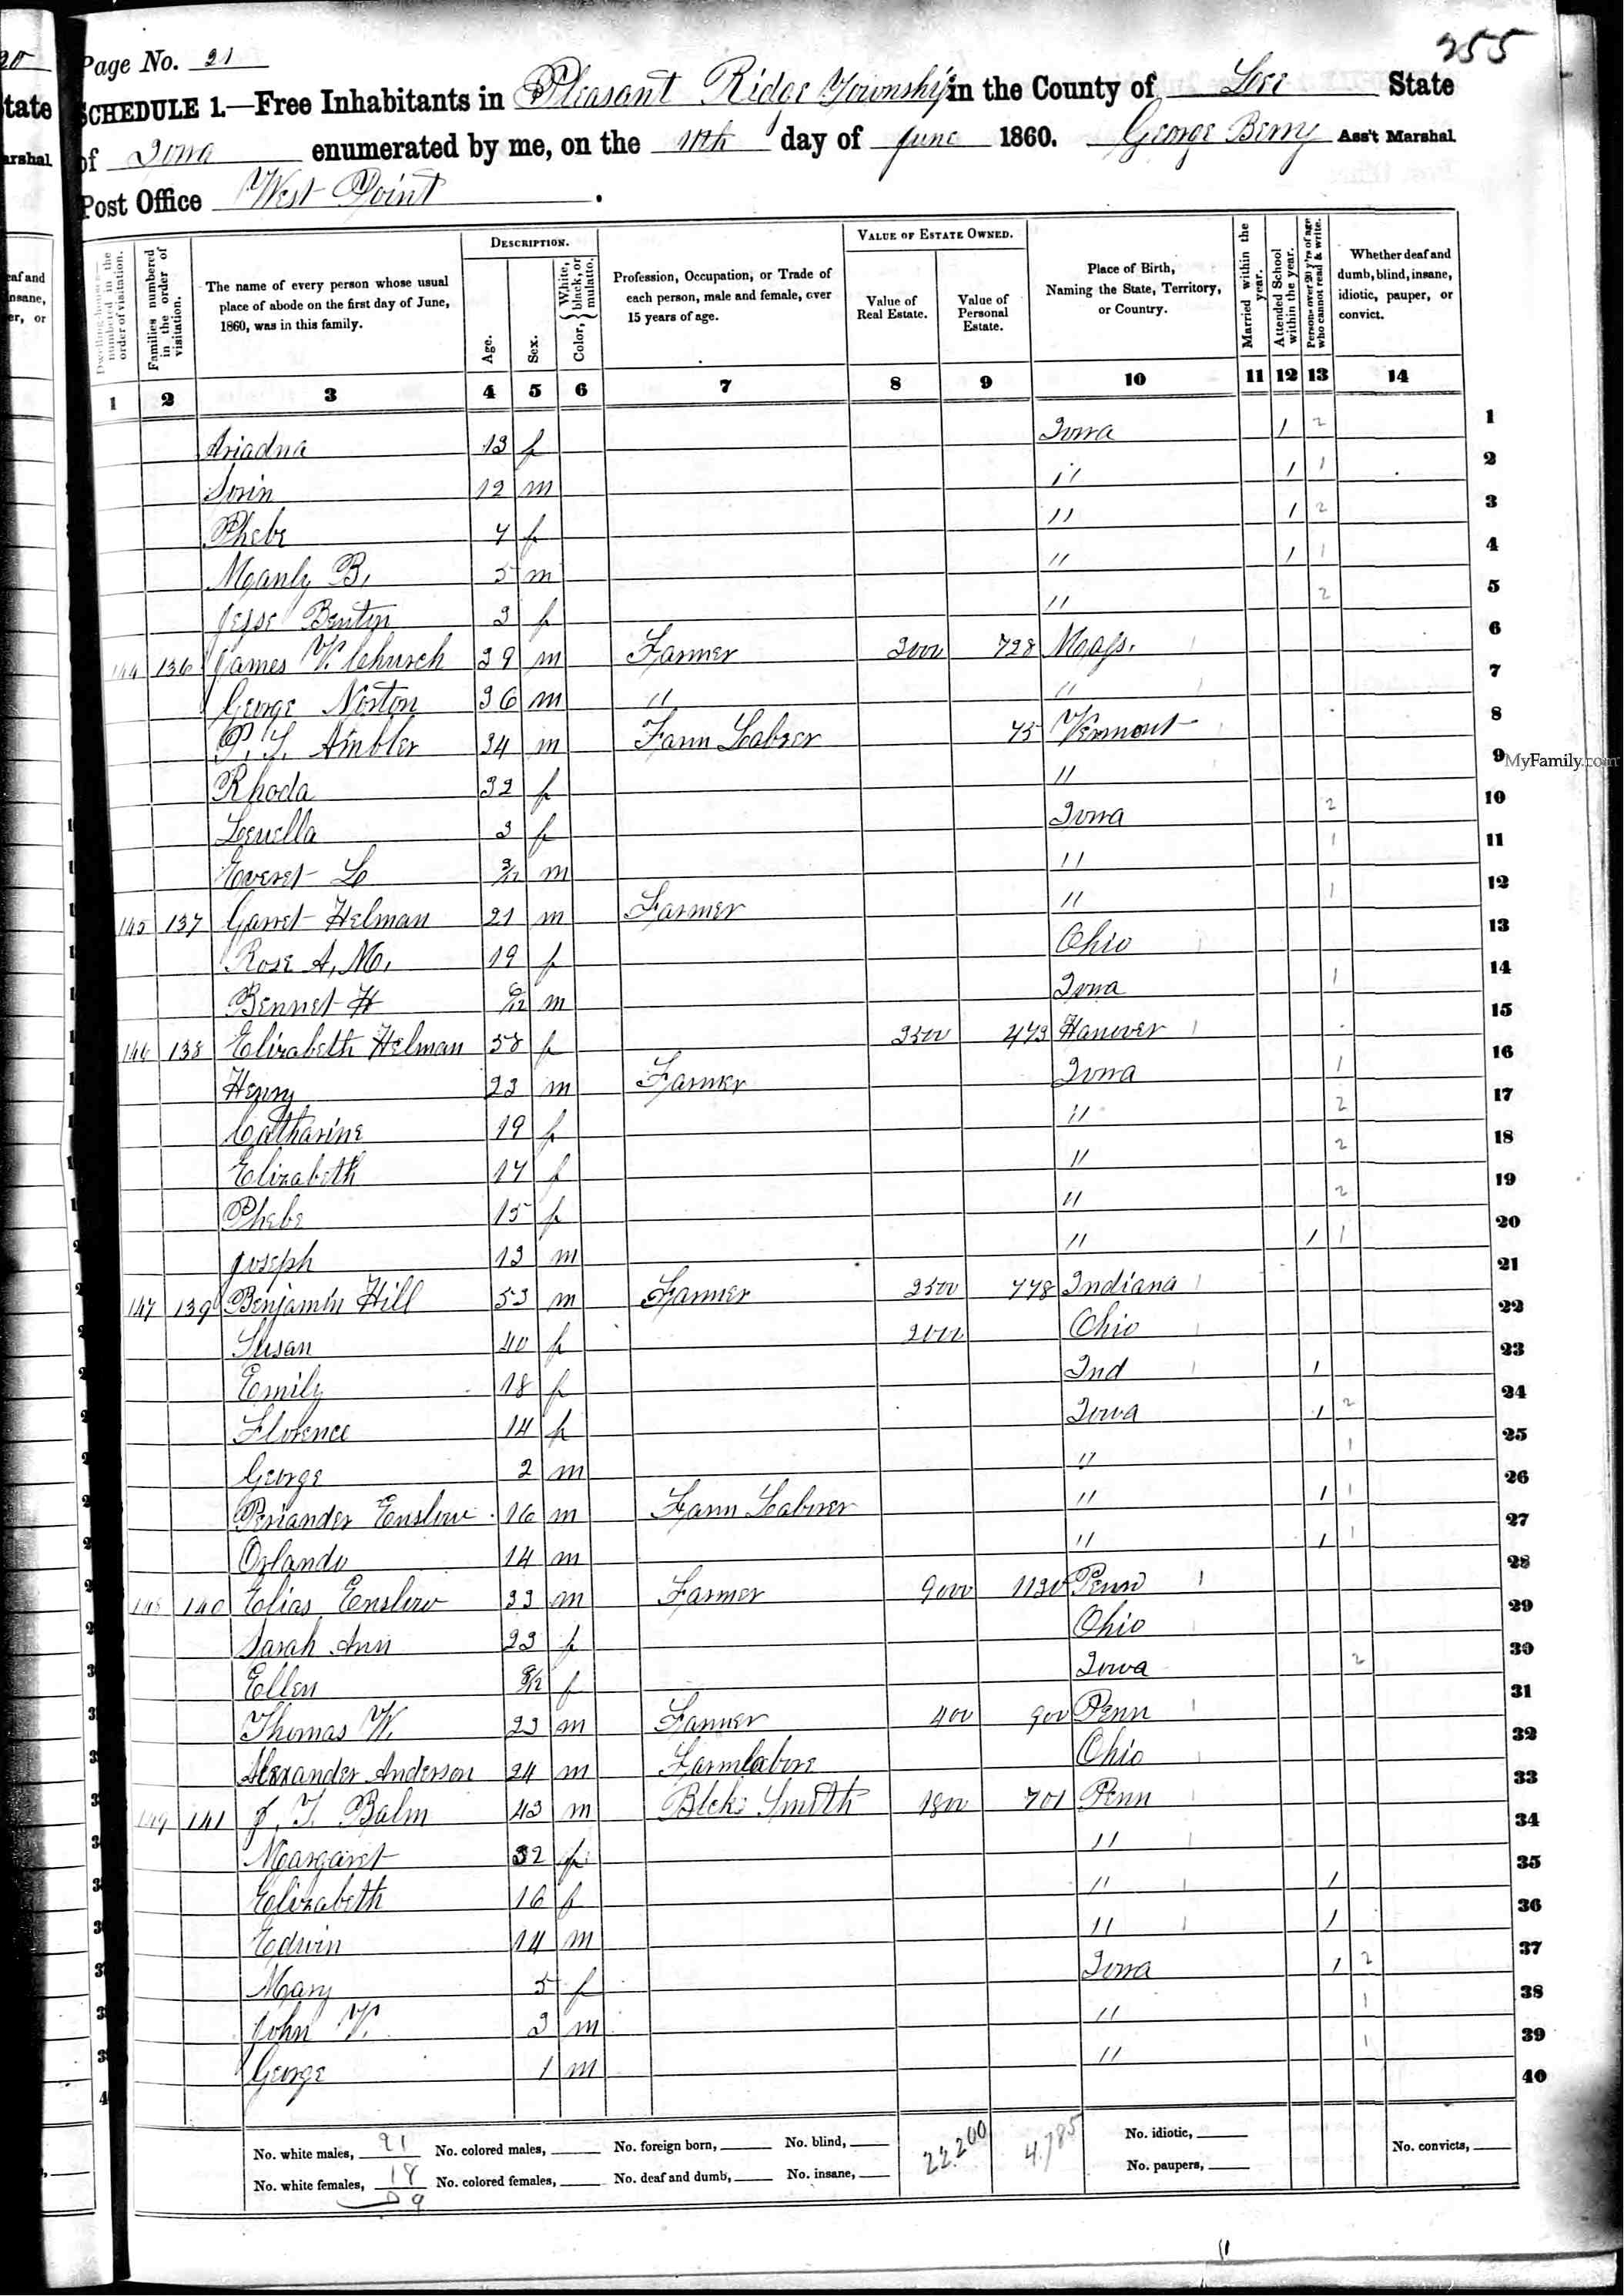 255
Page No. 21
SCHEDULE 1.—Free Inhabitants in Pleasant Ridge Township in the County of Lee State
of Iowa enumerated by me, on the 11th day of June 1860. George Berry Ass't Marshal
Post Office West Point .
Dwelling-houses— numbered in the order of visitation.
Families numbered in the order of visitation.
The name of every person whose usual place of abode on the first day of June, 1860, was in this family.
DESCRIPTION.
Age.
Sex.
Color, { White, black, or mulatto.
Profession, Occupation, or Trade of each person, male and female, over 15 years of age.
VALUE OF ESTATE OWNED.
Value of Real Estate.
Value of Personal Estate.
Place of Birth, Naming the State, Territory, or Country.
Married within the year.
Attended School within the year.
Persons over 20 y'rs of age who cannot read & write.
Whether deaf and dumb, blind, insane, idiotic, pauper, or convict.
1 2 3 4 5 6 7 8 9 10 11 12 13 14
Ariadna 13 f Iowa 1 2 1
Sorin 12 m " 1 1 2
Phebe 7 f " 1 2 3
Manly B. 5 m " 1 1 4
Jesse Bentin 3 f " 2 5
144 136 James V. Church 39 m Farmer 3000 728 Mass. 6
George Norton 36 m " " 7
P. L. Ambler 34 m Farm Labrer 75 Vermont 8
Rhoda 32 f " 9
MyFamily.com
Louella 3 f Iowa 2 10
Everet L 3/12 m " 1 11
145 137 Garret Helman 21 m Farmer " 1 12
Rose A. M. 19 f Ohio 13
Bennet H 6/12 m Iowa 1 14
146 138 Elizabeth Helman 58 f 3500 473 Hanover 15
Henry 23 m Farmer Iowa 1 16
Catharine 19 f " 2 17
Elizabeth 17 f " 2 18
Phebe 15 f " 2 19
Joseph 13 m " 1 1 20
147 139 Benjamin Hill 53 m Farmer 2500 778 Indiana 21
Susan 40 f 2000 Ohio 22
Emily 18 f Ind 1 23
Florence 14 f Iowa 1 2 24
George 2 m " 1 25
Periander Enslow 16 m Farm Laborer " 1 1 26
Orlando 14 m " 1 1 27
148 140 Elias Enslow 33 m Farmer 9000 1130 Penn 28
Sarah Ann 23 f Ohio 29
Ellen 8/12 f Iowa 2 30
Thomas W. 23 m Farmer 400 900 Penn 31
Alexander Anderson 24 m Farm labore Ohio 32
149 141 J. T. Balm 43 m Blck Smith 1800 701 Penn 33
Margaret 32 f " 34
Elizabeth 16 f " 1 35
Edwin 14 m " 1 36
Mary 5 f Iowa 1 2 37
John V. 3 m " 1 38
George 1 m " 1 39
40
No. white males, 21 No. colored males, No. foreign born, No. blind, 22.200 4.785 No. idiotic, No. convicts,
No. white females, 18 No. colored females, No. deaf and dumb, No. insane, No. paupers,
39